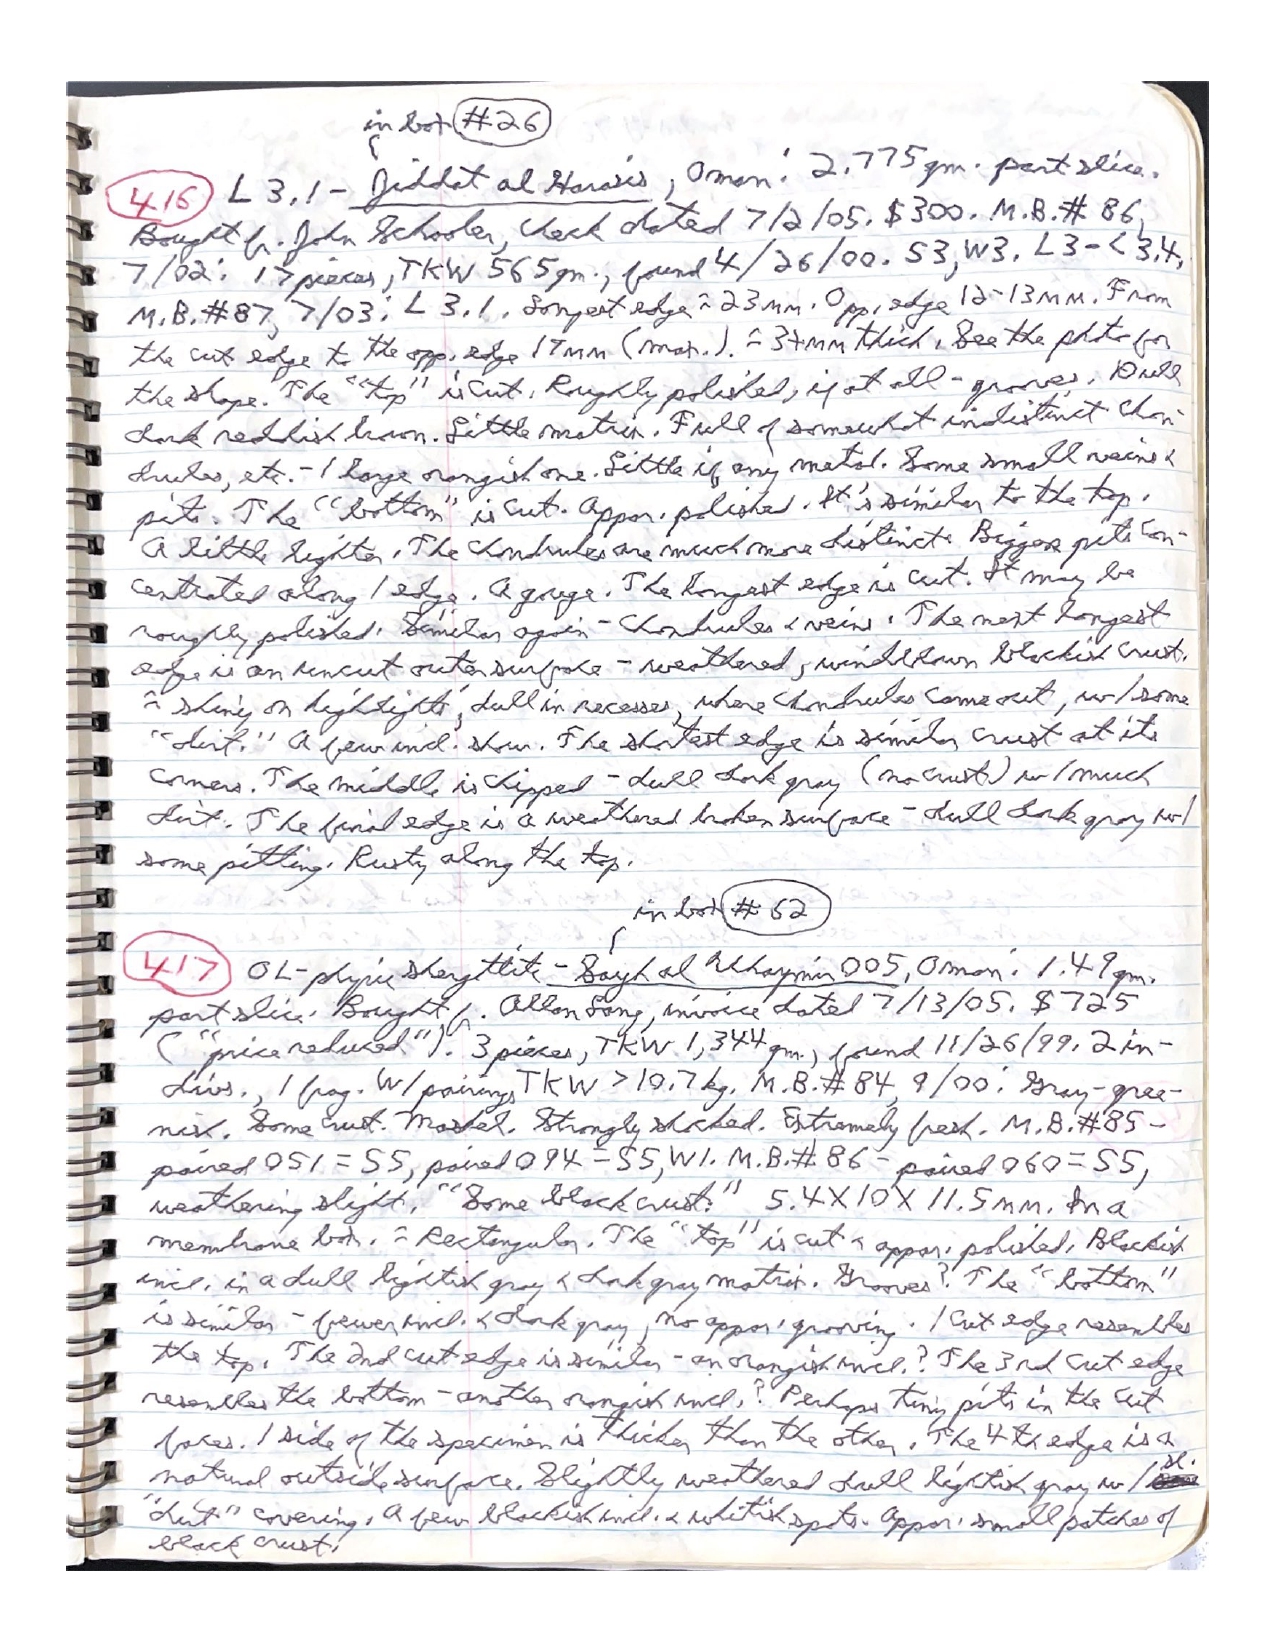 in box #26
416 L 3.1 - Jiddat al Harasis, Oman: 2.775 gm. part slice.
Bought fr. John Schooler, check dated 7/2/05. $300. M.B.# 86,
7/02: 17 pieces, TKW 565 gm., found 4/26/00. S3, W3. L3-<3.4,
M.B.#87, 7/03: L 3.1. Longest edge ≈ 23 mm. Opp. edge 12-13 mm. From
the cut edge to the opp. edge 17 mm (max.). ≈ 3+ mm thick. See the photo for
the shape. The "top" is cut. Roughly polished, if at all - grooves. Dull
dark reddish brown. Little matrix. Full of somewhat indistinct chon-
drules, etc. - 1 large orangish one. Little if any metal. Some small veins &
pits. The "bottom" is cut. Appar. polished. It's similar to the top.
A little lighter. The chondrules are much more distinct. Bigger pits con-
centrated along 1 edge. A gouge. The longest edge is cut. It may be
roughly polished. Similar again - chondrules & veins. The next longest
edge is an uncut outer surface - weathered, windblown blackish crust.
≈ shiny on highlights, dull in recesses, where chondrules came out, w/some
"dirt." A few incl. show. The shortest edge is similar crust at its
corners. The middle is chipped - dull dark gray (no crust) w/much
dirt. The final edge is a weathered broken surface - dull dark gray w/
some pitting. Rusty along the top.
in box #62
417 OL-phyric shergottite - Sayh al Uhaymir 005, Oman: 1.49 gm.
part slice. Bought fr. Allan Lang, invoice dated 7/13/05. $725
("price reduced"). 3 pieces, TKW 1,344 gm., found 11/26/99. 2 in-
divs., 1 frag. W/pairings TKW >10.7 kg. M.B.#84, 9/00: Gray-gree-
nish. Some crust. Maskel. Strongly shocked. Extremely fresh. M.B.#85 -
paired 051 = S5, paired 094 = S5, W1. M.B.#86 - paired 060 = S5,
weathering slight. "Some black crust." 5.4 X 10 X 11.5 mm. In a
membrane box. ≈ Rectangular. The "top" is cut & appar. polished. Blackish
incl. in a dull lightish gray & dark gray matrix. Grooves? The "bottom"
is similar - fewer incl. & dark gray, no appar. grooving. 1 cut edge resembles
the top. The 2nd cut edge is similar - an orangish incl.? The 3rd cut edge
resembles the bottom - another orangish incl.? Perhaps tiny pits in the cut
faces. 1 side of the specimen is thicker than the other. The 4th edge is a
natural outside surface. Slightly weathered dull lightish gray w/ sl.
"dirt" covering. A few blackish incl. & whitish spots. Appar. small patches of
black crust.